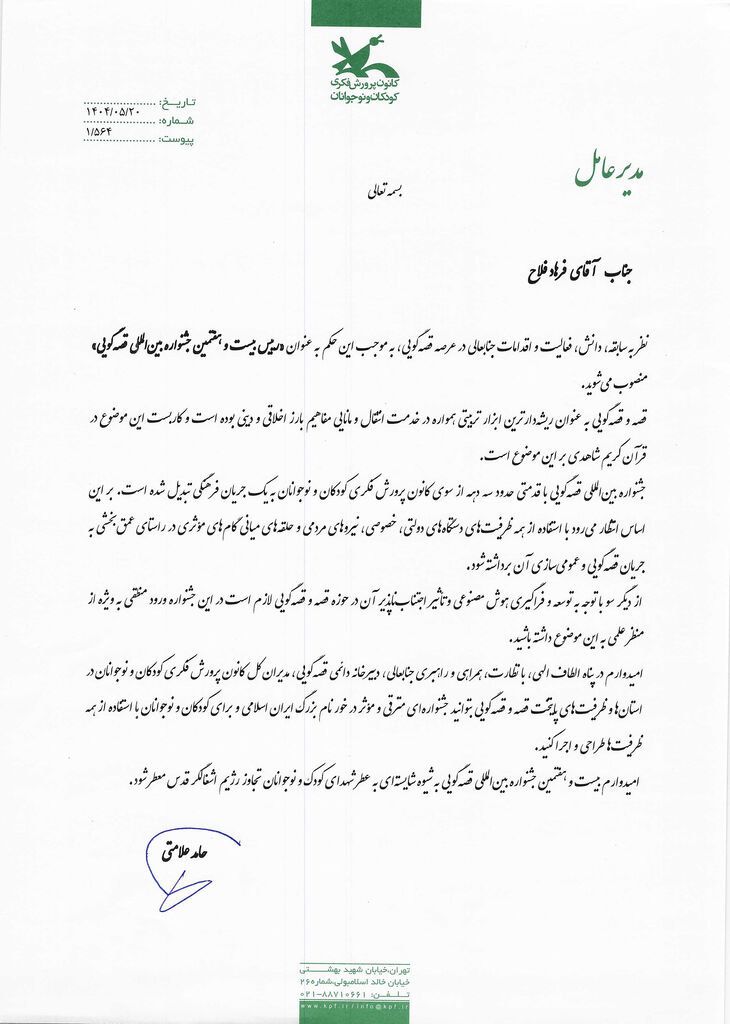 کانون پرورش فکری
کودکان و نوجوانان
تاریخ: ۱۴۰۴/۰۵/۲۰
شماره: ۱/۵۶۴
پیوست:
مدیر عامل
بسمه تعالی
جناب آقای فرهاد فلاح
نظر به سابقه، دانش، فعالیت و اقدامات جنابعالی در عرصه قصه‌گویی، به موجب این حکم به عنوان «رییس بیست و هفتمین جشنواره بین‌المللی قصه‌گویی»
منصوب می‌شوید.
قصه و قصه‌گویی به عنوان ریشه‌دارترین ابزار تربیتی همواره در خدمت انتقال و مانایی مفاهیم بارز اخلاقی و دینی بوده است و کاربست این موضوع در
قرآن کریم شاهدی بر این موضوع است.
جشنواره بین‌المللی قصه‌گویی با قدمتی حدود سه دهه از سوی کانون پرورش فکری کودکان و نوجوانان به یک جریان فرهنگی تبدیل شده است. بر این
اساس انتظار می‌رود با استفاده از همه ظرفیت‌های دستگاه‌های دولتی، خصوصی، نیروهای مردمی و حلقه‌های میانی گام‌های مؤثری در راستای عمق بخشی به
جریان قصه‌گویی و عمومی‌سازی آن برداشته شود.
از دیگر سو با توجه به توسعه و فراگیری هوش مصنوعی و تأثیر اجتناب‌ناپذیر آن در حوزه قصه و قصه‌گویی لازم است در این جشنواره ورود منطقی به ویژه از
منظر علمی به این موضوع داشته باشید.
امیدوارم در پناه الطاف الهی، با نظارت، همراهی و راهبری جنابعالی، دبیرخانه دائمی قصه‌گویی، مدیران کل کانون پرورش فکری کودکان و نوجوانان در
استان‌ها و ظرفیت‌های پایتخت قصه و قصه‌گویی بتوانید جشنواره‌ای مترقی و مؤثر در خور نام بزرگ ایران اسلامی و برای کودکان و نوجوانان با استفاده از همه
ظرفیت‌ها طراحی و اجرا کنید.
امیدوارم بیست و هفتمین جشنواره بین‌المللی قصه‌گویی به شیوه شایسته‌ای به عطر شهدای کودک و نوجوانان تجاوز رژیم اشغالگر قدس معطر شود.
حامد علامتی
تهران، خیابان شهید بهشتی
خیابان خالد اسلامبولی، شماره ۲۶
تلفن: ۰۲۱-۸۸۷۱۰۶۶۱
www.kpf.ir/info@kpf.ir